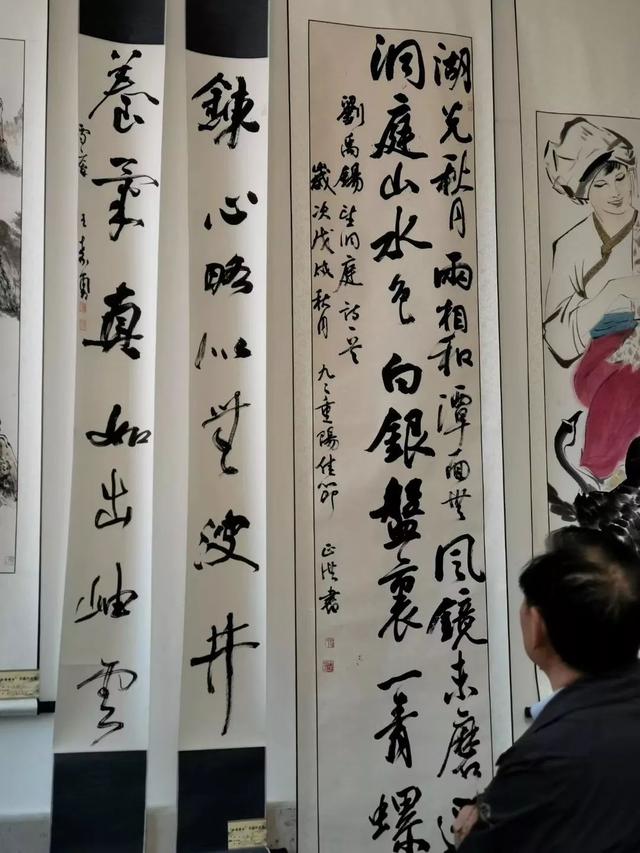 湖光秋月兩相和潭面無風鏡未磨
洞庭山水色白銀盤裏一青螺
劉禹錫望洞庭詩一首
歲次戊戌秋月九々重陽佳節正洪書
鍊心略似無波井
養氣真如出岫雲